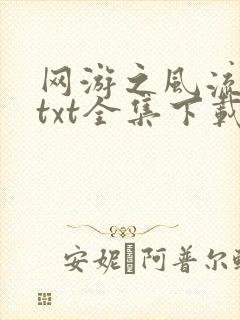 网游之风流
txt全集下载
安妮 阿普尔